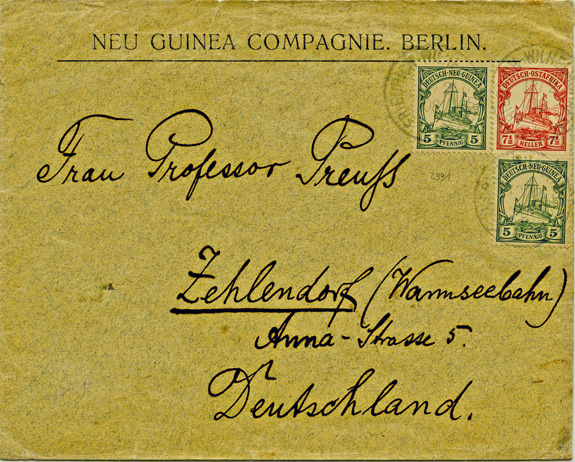 NEU GUINEA COMPAGNIE. BERLIN.
DEUTSCH-NEU-GUINEA
5 PFENNIG 5
DEUTSCH-OSTAFRIKA
7½ HELLER 7½
DEUTSCH-NEU-GUINEA
5 PFENNIG 5
Frau Professor Preuß
Zehlendorf (Wannseebahn)
Anna-Strasse 5.
Deutschland.